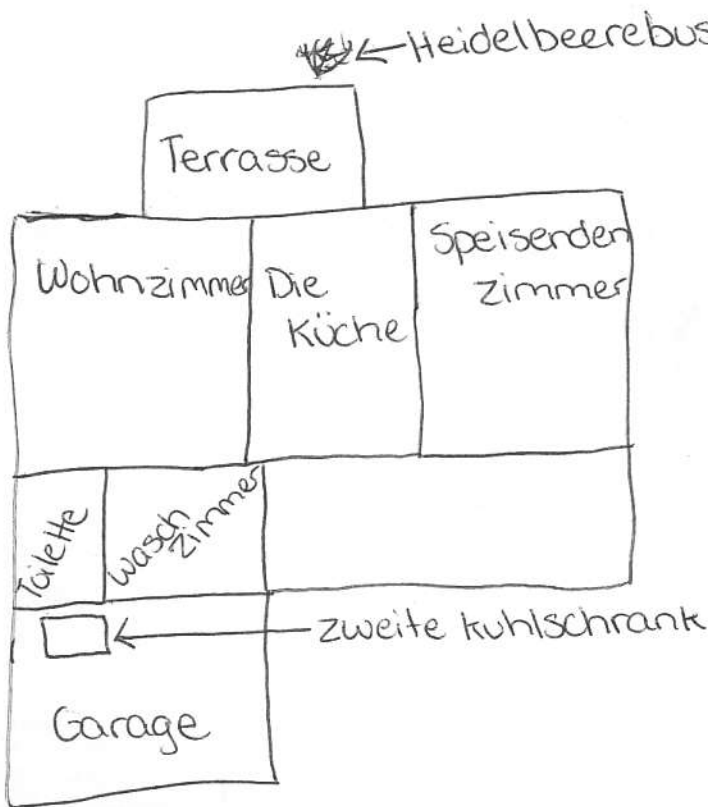 Heidelbeerebus
Terrasse
Wohnzimmer
Die
Küche
Speisenden
zimmer
Toilette
wasch
zimmer
zweite kuhlschrank
Garage